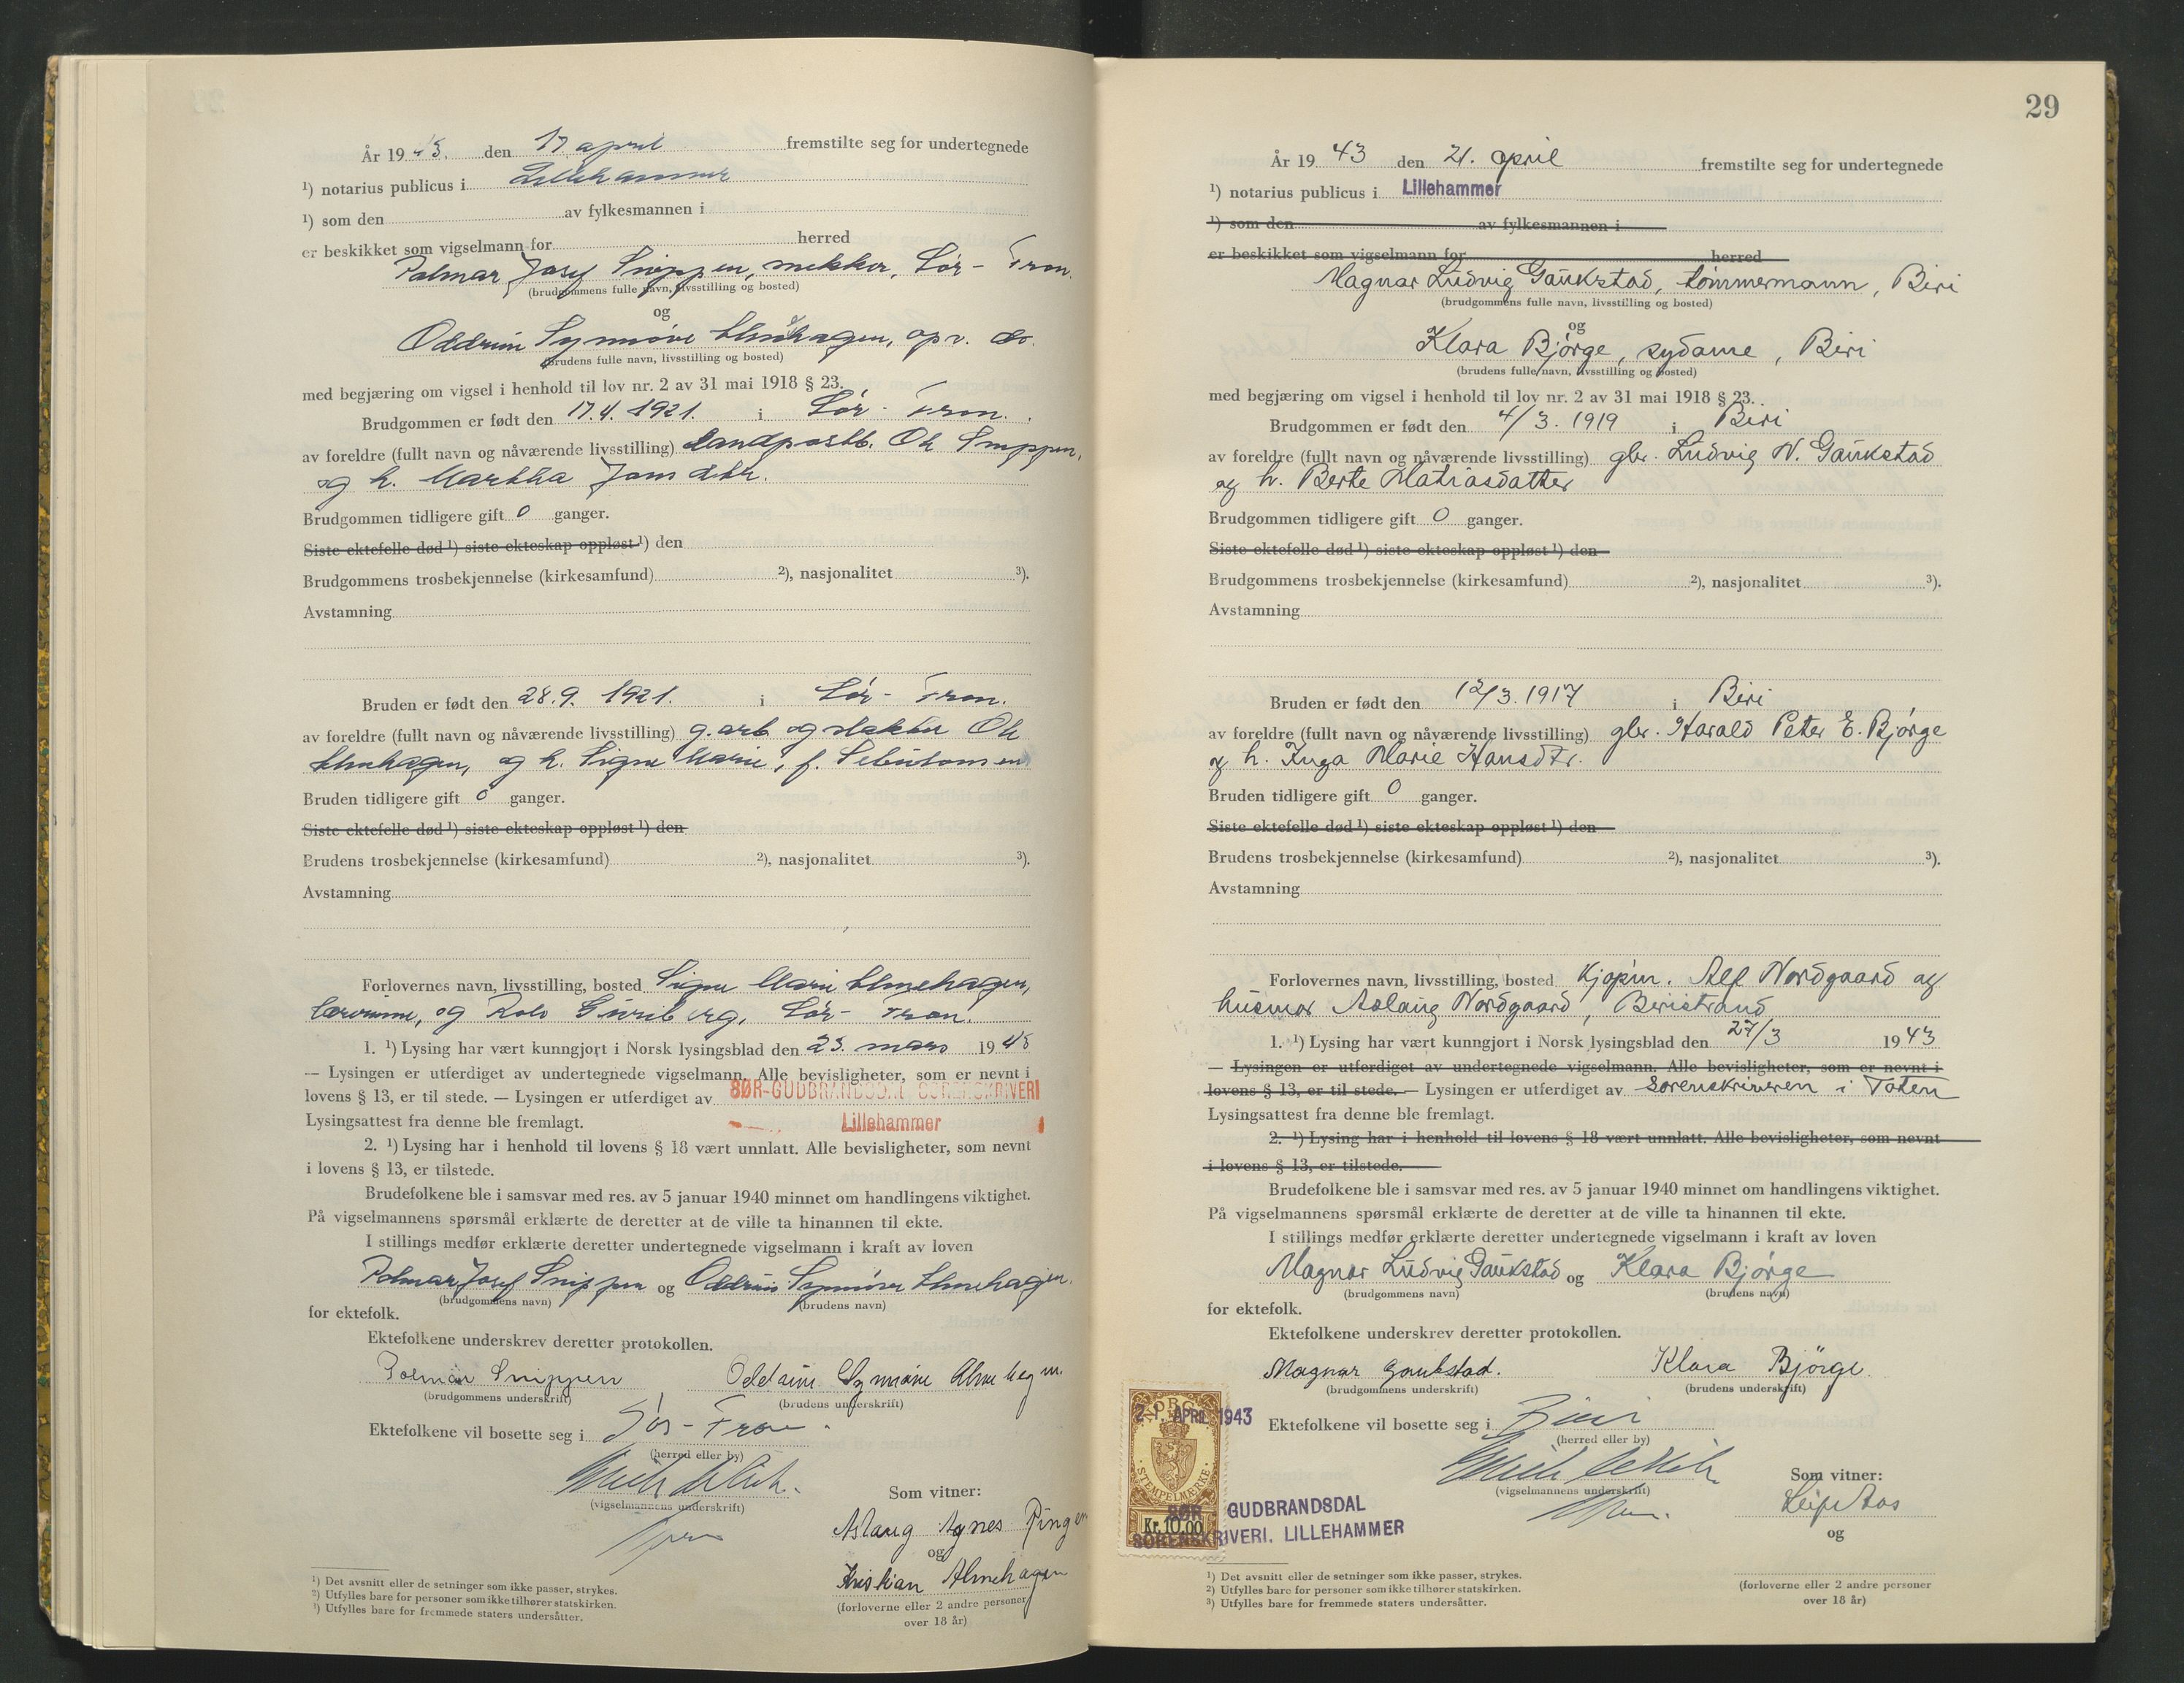 År 1943. den 17 april fremstilte seg for undertegnede
¹) notarius publicus i Lillehammer
¹) som den av fylkesmannen i
er beskikket som vigselmann for herred
Polmar Josef Snippen, mekker, Sør-Fron.
(brudgommens fulle navn, livsstilling og bosted)
og
Oddrun Synnøve Almehagen, opv. do.
(brudens fulle navn, livsstilling og bosted)
med begjæring om vigsel i henhold til lov nr. 2 av 31 mai 1918 § 23.
Brudgommen er født den 17.4. 1921. i Sør-Fron.
av foreldre (fullt navn og nåværende livsstilling) landpostb. Ole Snippen,
og h. Martha Jamdtr.
Brudgommen tidligere gift 0 ganger.
Siste ektefelle død ¹) siste ekteskap oppløst ¹) den
Brudgommens trosbekjennelse (kirkesamfund) ²), nasjonalitet ³).
Avstamning
Bruden er født den 28.9. 1921. i Sør-Fron.
av foreldre (fullt navn og nåværende livsstilling) g.arb. og slakter Ole
Almehagen, og h. Signe Marie, f.
Bruden tidligere gift 0 ganger.
Siste ektefelle død ¹) siste ekteskap oppløst ¹) den
Brudens trosbekjennelse (kirkesamfund) ²), nasjonalitet ³).
Avstamning
Forlovernes navn, livsstilling, bosted Signe Marie Almehagen,
og Sør-Fron.
1. ¹) Lysing har vært kunngjort i Norsk lysingsblad den 23. mars 1943
— Lysingen er utferdiget av undertegnede vigselmann. Alle bevisligheter, som er nevnt i
lovens § 13, er til stede. — Lysingen er utferdiget av SØR-GUDBRANDSDAL SORENSKRIVERI
Lysingsattest fra denne ble fremlagt. Lillehammer
2. ¹) Lysing har i henhold til lovens § 18 vært unnlatt. Alle bevisligheter, som nevnt
i lovens § 13, er tilstede.
Brudefolkene ble i samsvar med res. av 5 januar 1940 minnet om handlingens viktighet.
På vigselmannens spørsmål erklærte de deretter at de ville ta hinannen til ekte.
I stillings medfør erklærte deretter undertegnede vigselmann i kraft av loven
Polmar Josef Snippen og Oddrun Synnøve Almehagen.
(brudgommens navn) (brudens navn)
for ektefolk.
Ektefolkene underskrev deretter protokollen.
Polmar Snippen Oddrun Synnøve Almehagen.
(brudgommens underskrift) (brudens underskrift)
Ektefolkene vil bosette seg i Sør-Fron.
(herred eller by)
(vigselmannens underskrift)
Som vitner:
Aslaug Agnes Ringen
og
Kristian Almehagen
(forloverne eller 2 andre personer
over 18 år)
¹) Det avsnitt eller de setninger som ikke passer, strykes.
²) Utfylles bare for personer som ikke tilhører statskirken.
³) Utfylles bare for fremmede staters undersåtter.
29
År 1943 den 21. april fremstilte seg for undertegnede
¹) notarius publicus i Lillehammer
¹) som den av fylkesmannen i
er beskikket som vigselmann for herred
Magnar Ludvig Gaukstad, tømmermann, Biri
(brudgommens fulle navn, livsstilling og bosted)
og
Klara Bjørge, sydame, Biri
(brudens fulle navn, livsstilling og bosted)
med begjæring om vigsel i henhold til lov nr. 2 av 31 mai 1918 § 23.
Brudgommen er født den 4/3. 1919 i Biri
av foreldre (fullt navn og nåværende livsstilling) gbr. Ludvig N. Gaukstad
og h. Berte Matiasdatter
Brudgommen tidligere gift 0 ganger.
Siste ektefelle død ¹) siste ekteskap oppløst ¹) den
Brudgommens trosbekjennelse (kirkesamfund) ²), nasjonalitet ³).
Avstamning
Bruden er født den 12/3. 1917 i Biri
av foreldre (fullt navn og nåværende livsstilling) gbr. Harald Peter E. Bjørge
og h. Inga Marie Hansdtr.
Bruden tidligere gift 0 ganger.
Siste ektefelle død ¹) siste ekteskap oppløst ¹) den
Brudens trosbekjennelse (kirkesamfund) ²), nasjonalitet ³).
Avstamning
Forlovernes navn, livsstilling, bosted Kjøpm. Alf Nordgaard og
husmor Aslaug Nordgaard, Biristrand
1. ¹) Lysing har vært kunngjort i Norsk lysingsblad den 27/3 1943
— Lysingen er utferdiget av undertegnede vigselmann. Alle bevisligheter, som er nevnt i
lovens § 13, er til stede. — Lysingen er utferdiget av sorenskriveren i Toten
Lysingsattest fra denne ble fremlagt.
2. ¹) Lysing har i henhold til lovens § 18 vært unnlatt. Alle bevisligheter, som nevnt
i lovens § 13, er tilstede.
Brudefolkene ble i samsvar med res. av 5 januar 1940 minnet om handlingens viktighet.
På vigselmannens spørsmål erklærte de deretter at de ville ta hinannen til ekte.
I stillings medfør erklærte deretter undertegnede vigselmann i kraft av loven
Magnar Ludvig Gaukstad og Klara Bjørge
(brudgommens navn) (brudens navn)
for ektefolk.
Ektefolkene underskrev deretter protokollen.
Magnar Gaukstad. Klara Bjørge.
(brudgommens underskrift) (brudens underskrift)
NORGE
21. APRIL 1943
STEMPELMERKE
Kr. 10.00
Ektefolkene vil bosette seg i Biri
(herred eller by)
(vigselmannens underskrift)
SØR GUDBRANDSDAL
SORENSKRIVERI. LILLEHAMMER
Som vitner:
Leif Aas
og
(forloverne eller 2 andre personer
over 18 år)
¹) Det avsnitt eller de setninger som ikke passer, strykes.
²) Utfylles bare for personer som ikke tilhører statskirken.
³) Utfylles bare for fremmede staters undersåtter.